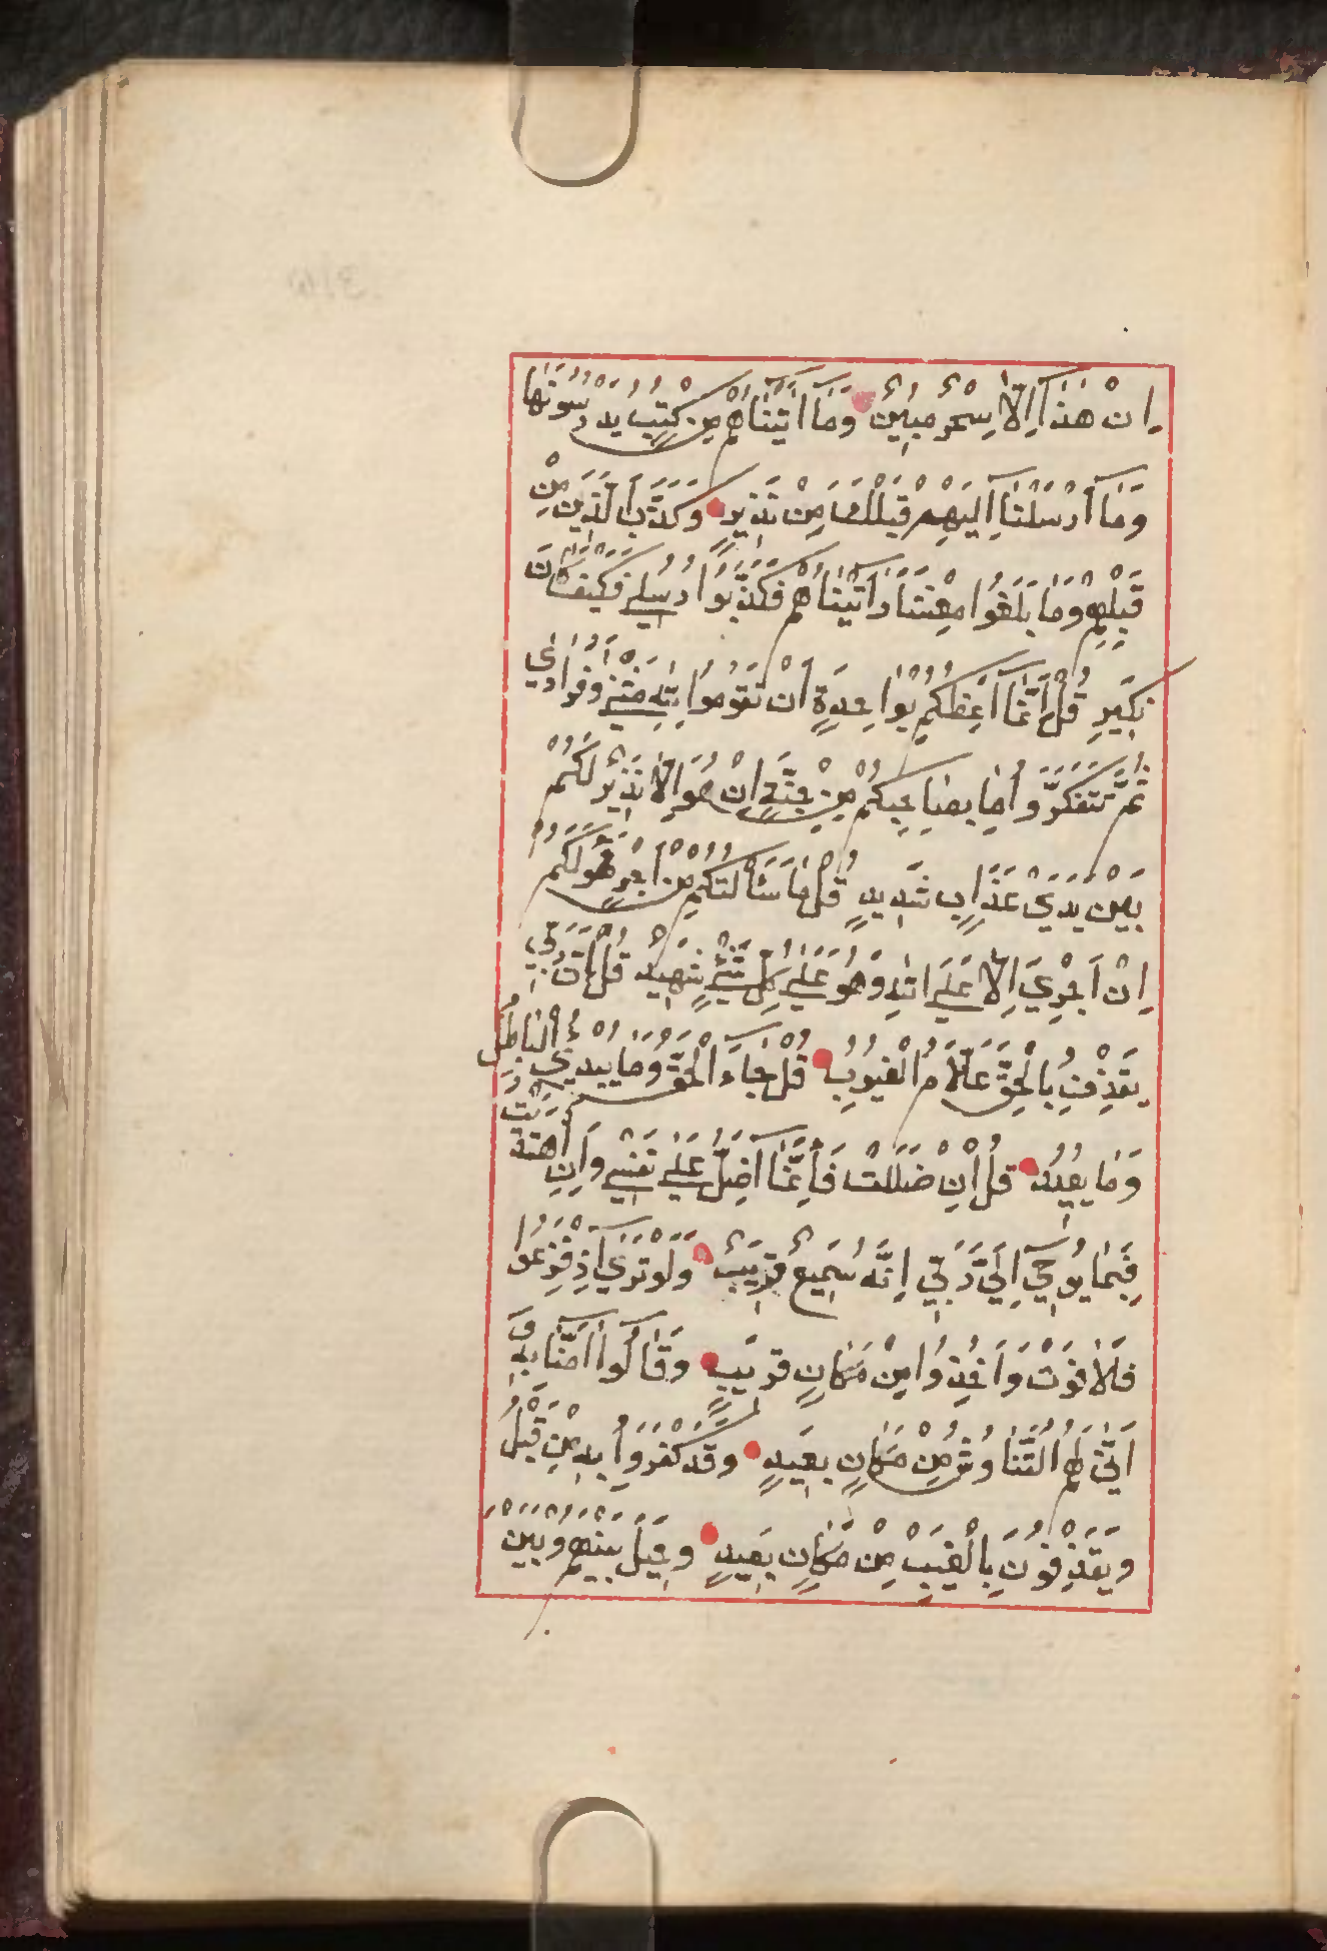 اِنْ هٰذَٓا اِلَّا سِحْرٌ مُبِينٌ وَمَٓا اٰتَيْنَاهُمْ مِنْ كُتُبٍ يَدْرُسُونَهَا
وَمَٓا اَرْسَلْنَٓا اِلَيْهِمْ قَبْلَكَ مِنْ نَذِيرٍ وَكَذَّبَ الَّذِينَ مِنْ
قَبْلِهِمْ وَمَا بَلَغُوا مِعْشَارَ مَٓا اٰتَيْنَاهُمْ فَكَذَّبُوا رُسُلِي فَكَيْفَ كَانَ
نَكِيرِ قُلْ اِنَّمَٓا اَعِظُكُمْ بِوَاحِدَةٍ اَنْ تَقُومُوا لِلّٰهِ مَثْنٰي وَفُرَادٰي
ثُمَّ تَتَفَكَّرُوا مَا بِصَاحِبِكُمْ مِنْ جِنَّةٍ اِنْ هُوَ اِلَّا نَذِيرٌ لَكُمْ
بَيْنَ يَدَيْ عَذَابٍ شَدِيدٍ قُلْ مَا سَاَلْتُكُمْ مِنْ اَجْرٍ فَهُوَ لَكُمْ
اِنْ اَجْرِيَ اِلَّا عَلَي اللّٰهِ وَهُوَ عَلٰي كُلِّ شَيْءٍ شَهِيدٌ قُلْ اِنَّ رَبِّي
يَقْذِفُ بِالْحَقِّ عَلَّامُ الْغُيُوبِ قُلْ جَٓاءَ الْحَقُّ وَمَا يُبْدِئُ الْبَاطِلُ
وَمَا يُعِيدُ قُلْ اِنْ ضَلَلْتُ فَاِنَّمَٓا اَضِلُّ عَلٰي نَفْسِي وَاِنِ اهْتَدَيْتُ
فَبِمَا يُوحِٓي اِلَيَّ رَبِّي اِنَّهُ سَمِيعٌ قَرِيبٌ وَلَوْ تَرٰٓي اِذْ فَزِعُوا
فَلَا فَوْتَ وَاُخِذُوا مِنْ مَكَانٍ قَرِيبٍ وَقَالُٓوا اٰمَنَّا بِهِ وَ
اَنّٰي لَهُمُ التَّنَاوُشُ مِنْ مَكَانٍ بَعِيدٍ وَقَدْ كَفَرُوا بِهِ مِنْ قَبْلُ
وَيَقْذِفُونَ بِالْغَيْبِ مِنْ مَكَانٍ بَعِيدٍ وَحِيلَ بَيْنَهُمْ وَبَيْنَ